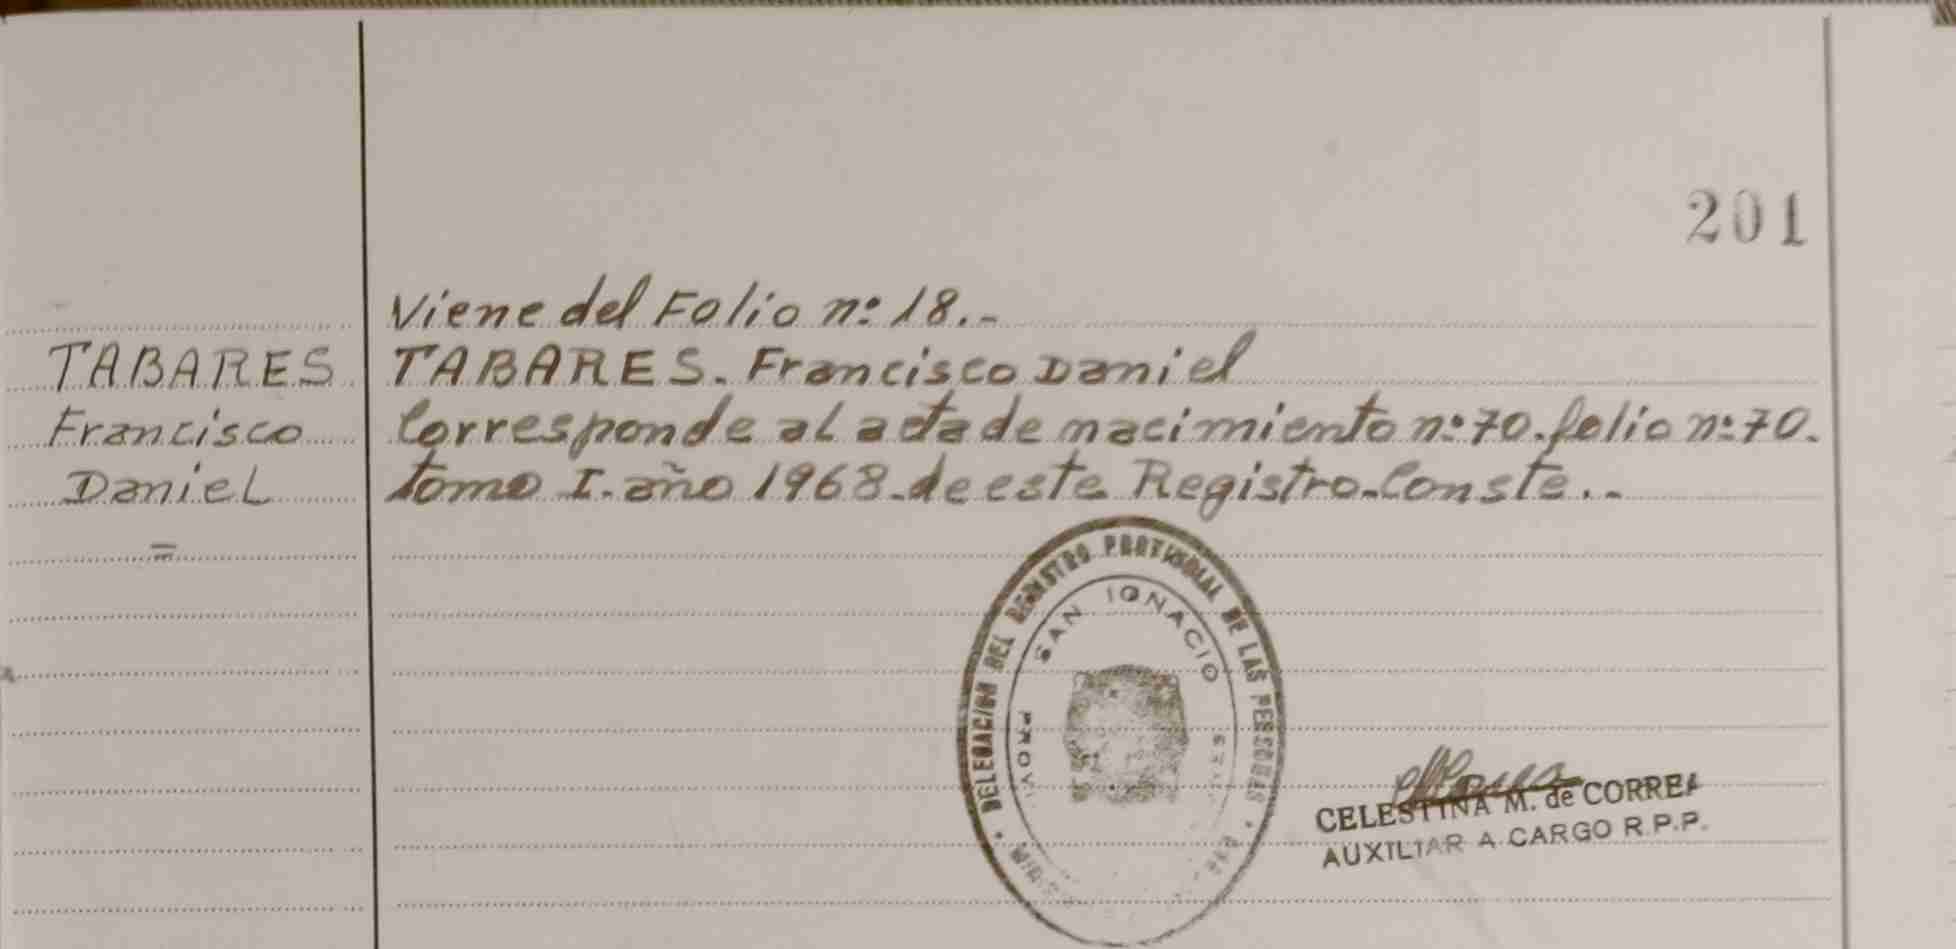 201
Viene del Folio nº 18.-
TABARES
Francisco
Daniel
=
TABARES. Francisco Daniel
Corresponde al acta de nacimiento nº 70. folio nº 70.
tomo I. año 1968. de este Registro. Conste..-
DELEGACION DEL REGISTRO PROVINCIAL DE LAS PERSONAS
SAN IGNACIO
CELESTINA M. de CORREA
AUXILIAR A CARGO R.P.P.